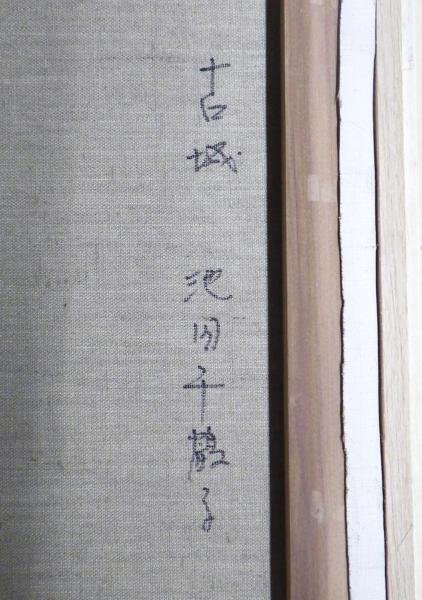 古城 池田千 子